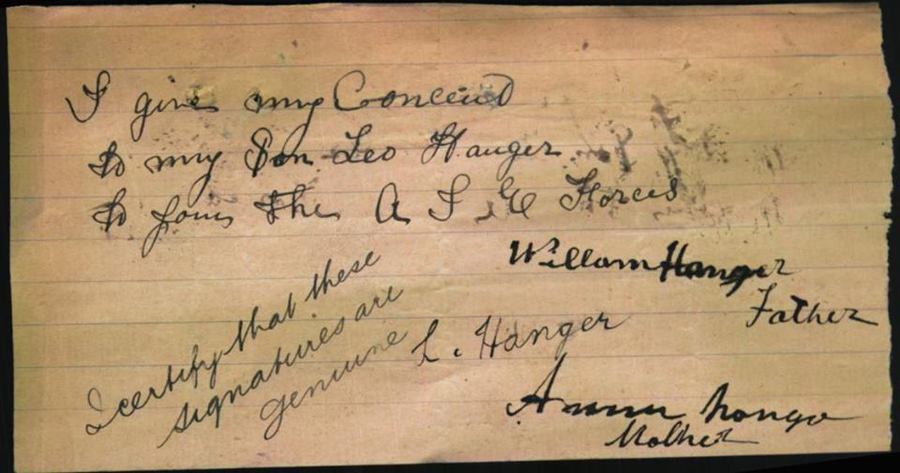 I give my Conceent
to my Son Leo Hanger
to join the A I E Forces
Willam Hanger
Father
I certify that these
signatures are
genuine L. Hanger
Mother